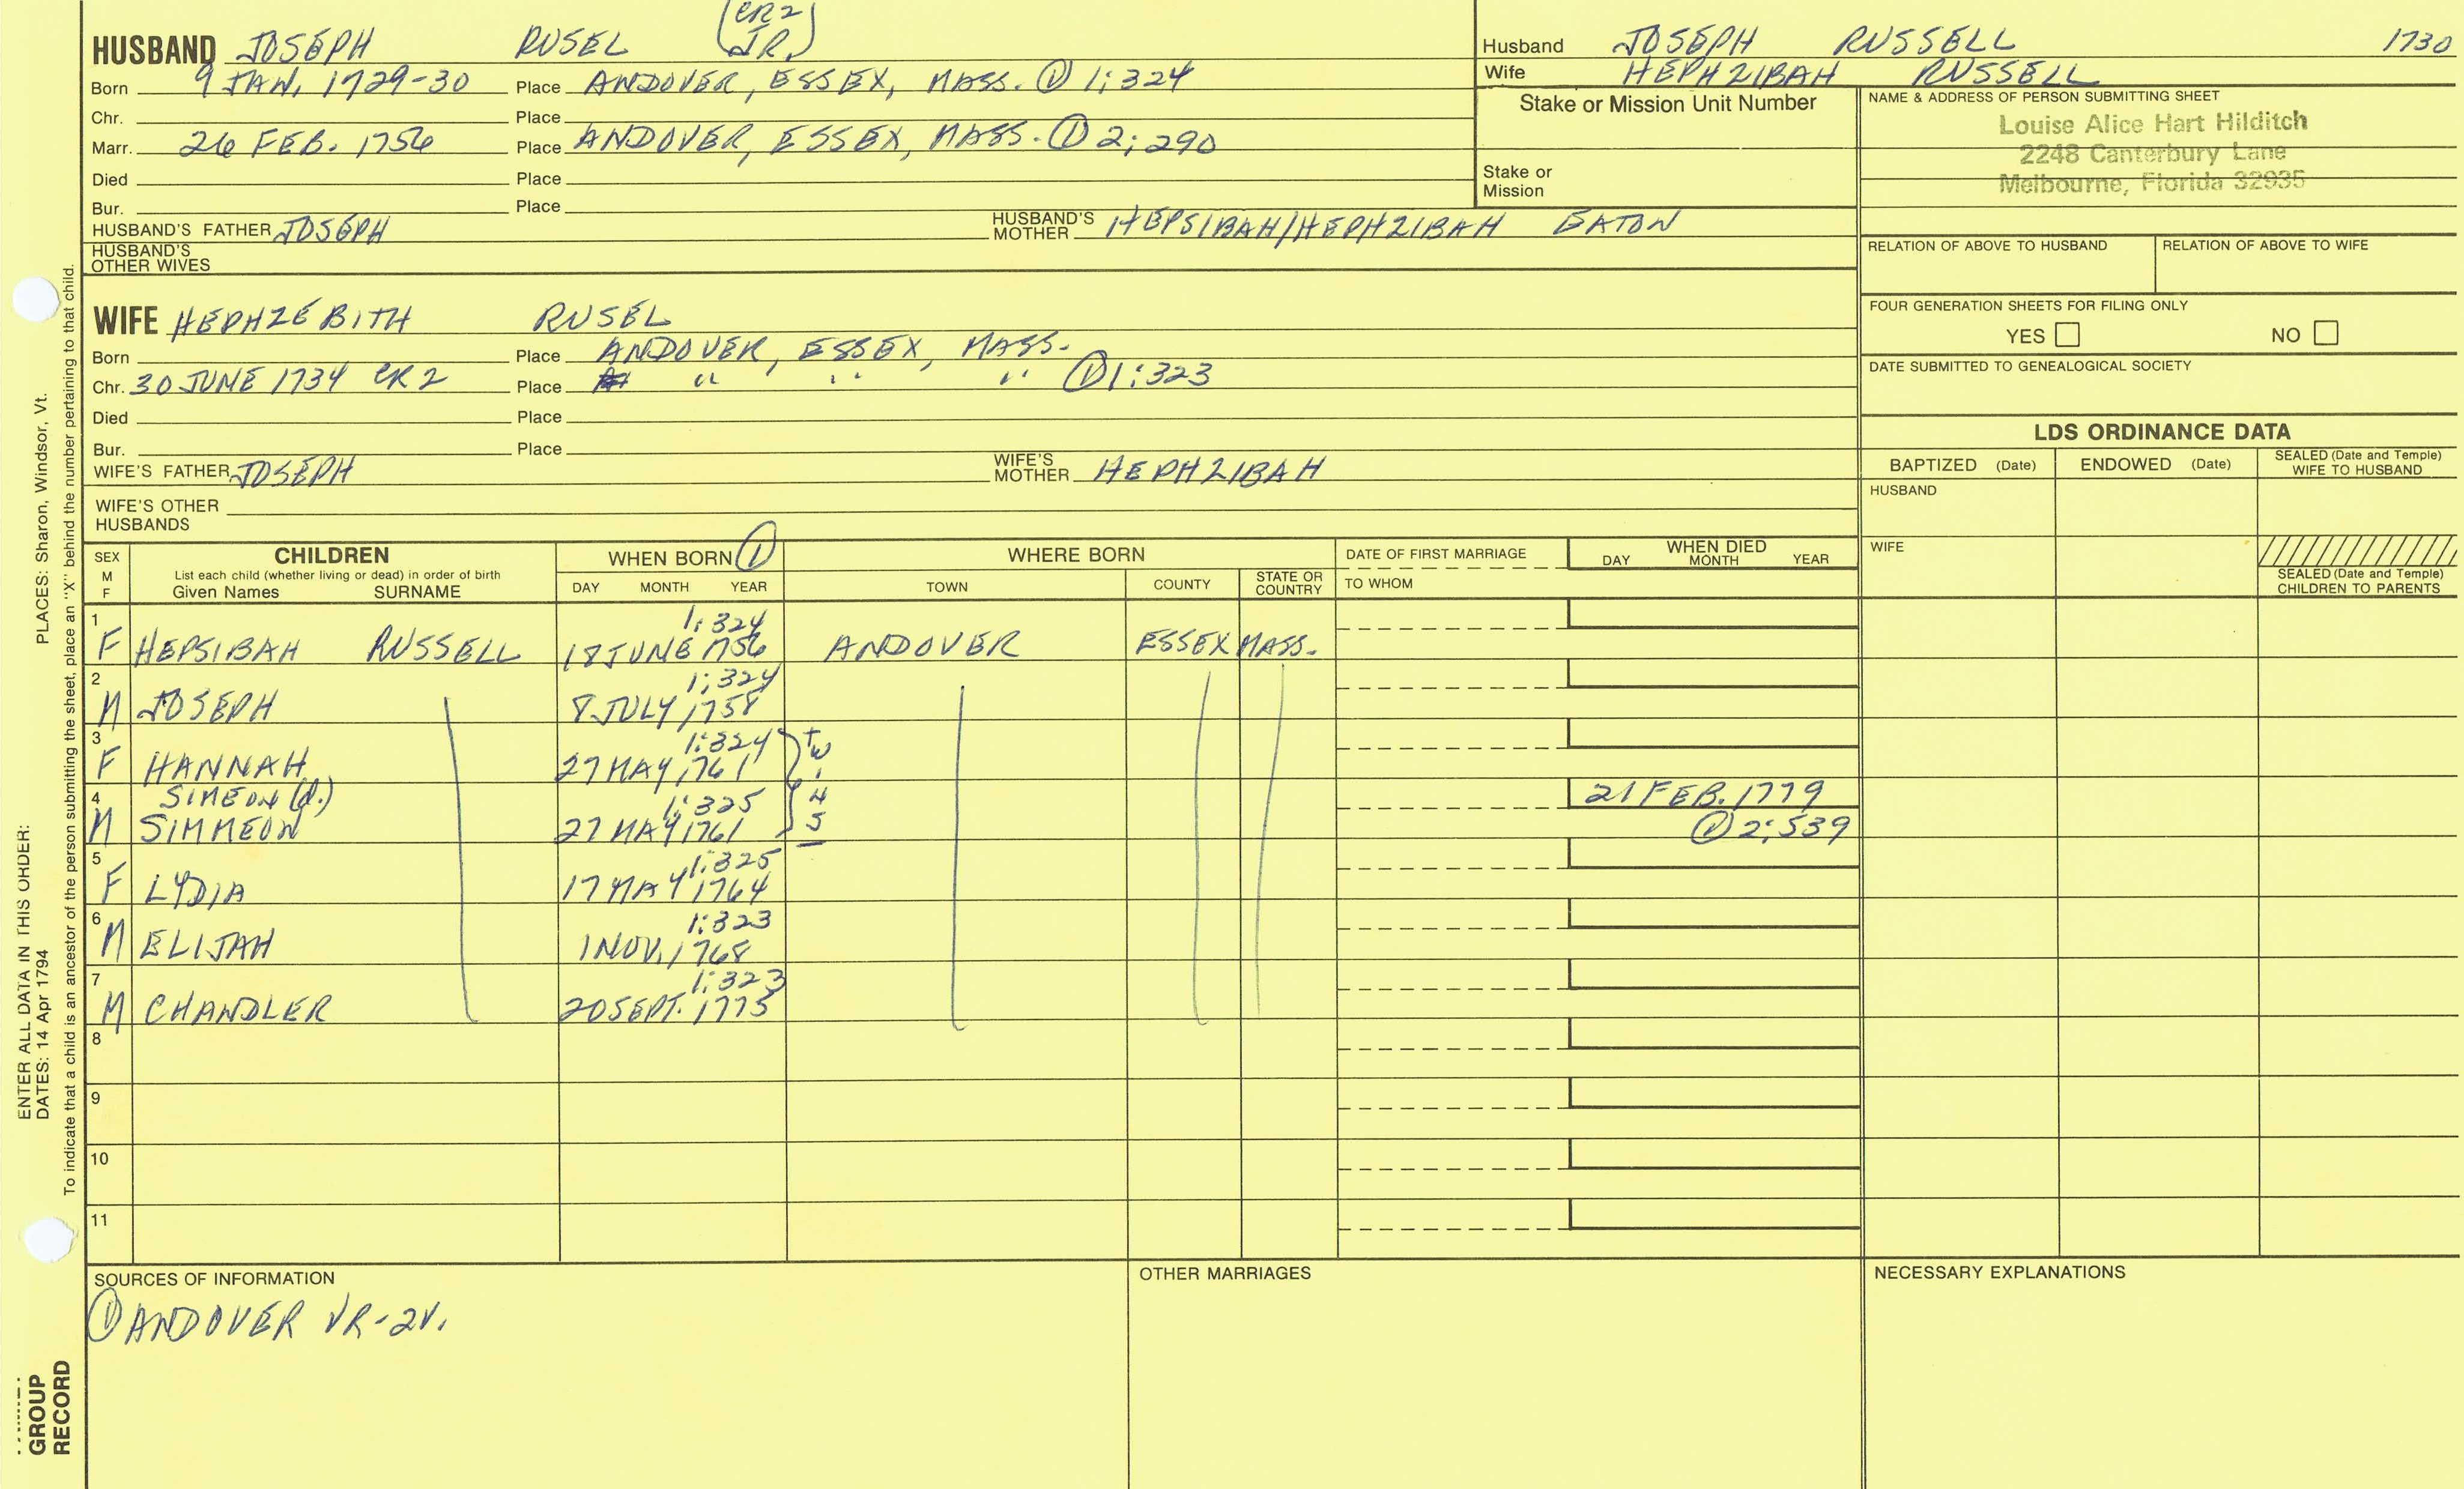 HUSBAND JOSEPH RUSEL (CR2 JR.)
Born 9 JAN. 1729-30 Place ANDOVER, ESSEX, MASS. ① 1:324
Chr. Place
Marr. 26 FEB. 1756 Place ANDOVER, ESSEX, MASS. ① 2:290
Died Place
Bur. Place
HUSBAND'S FATHER JOSEPH HUSBAND'S MOTHER HEPSIBAH/HEPHZIBAH EATON
HUSBAND'S OTHER WIVES
Husband JOSEPH RUSSELL 1730
Wife HEPHZIBAH RUSSELL
Stake or Mission Unit Number
Stake or Mission
NAME & ADDRESS OF PERSON SUBMITTING SHEET
Louise Alice Hart Hilditch
2248 Canterbury Lane
Melbourne, Florida 32935
RELATION OF ABOVE TO HUSBAND RELATION OF ABOVE TO WIFE
FOUR GENERATION SHEETS FOR FILING ONLY
YES NO
DATE SUBMITTED TO GENEALOGICAL SOCIETY
WIFE HEPHZEBITH RUSEL
Born Place ANDOVER, ESSEX, MASS.
Chr. 30 JUNE 1734 CR2 Place " " " ① 1:323
Died Place
Bur. Place
WIFE'S FATHER JOSEPH WIFE'S MOTHER HEPHZIBAH
WIFE'S OTHER HUSBANDS
LDS ORDINANCE DATA
BAPTIZED (Date) ENDOWED (Date) SEALED (Date and Temple) WIFE TO HUSBAND
HUSBAND
WIFE
SEALED (Date and Temple) CHILDREN TO PARENTS
SEX M F CHILDREN List each child (whether living or dead) in order of birth Given Names SURNAME
WHEN BORN ① DAY MONTH YEAR
WHERE BORN TOWN COUNTY STATE OR COUNTRY
DATE OF FIRST MARRIAGE TO WHOM
WHEN DIED DAY MONTH YEAR
1 1:324
F HEPSIBAH RUSSELL 18 JUNE 1756 ANDOVER ESSEX MASS.
2 1:324
M JOSEPH 8 JULY 1758
3 1:324
F HANNAH 27 MAY 1761 TWINS
4 SIMEON (d.) 1:325 21 FEB. 1779
M SIMMEON 27 MAY 1761 ① 2:539
5 1:325
F LYDIA 17 MAY 1764
6 1:323
M ELIJAH 1 NOV. 1768
7 1:323
M CHANDLER 20 SEPT. 1775
8
9
10
11
SOURCES OF INFORMATION
① ANDOVER VR-2V.
OTHER MARRIAGES
NECESSARY EXPLANATIONS
ENTER ALL DATA IN THIS ORDER:
DATES: 14 Apr 1794 PLACES: Sharon, Windsor, Vt.
To indicate that a child is an ancestor of the person submitting the sheet, place an "X" behind the number pertaining to that child.
GROUP
RECORD